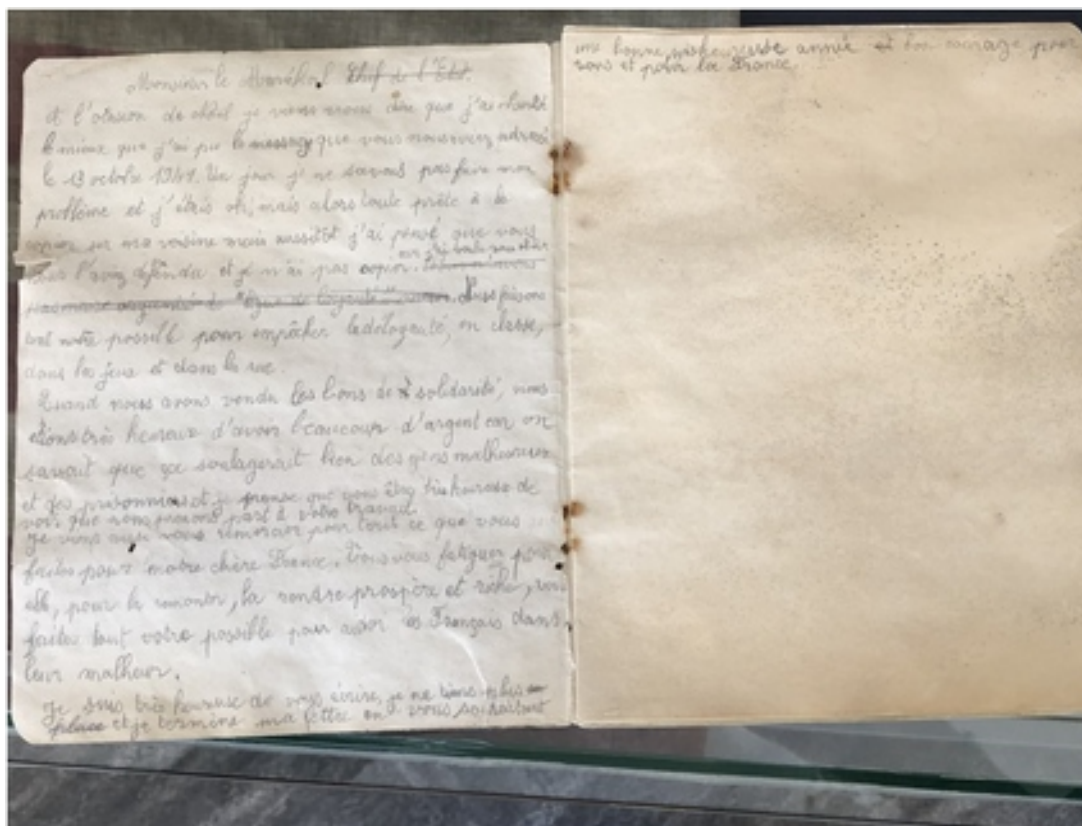 Monsieur le Maréchal Chef de l'Etat.
A l'ocasion de Noël je viens vous dire que j'ai
le mieux que j'ai pu le message que vous nous avez adressé
le 13 octobre 1941. Un jour je ne savais pas faire mon
problème et j'étais oh, mais alors toute prête à le
copier sur ma voisine mais aussitôt j'ai pensé que vous
nous l'aviez défendu et je n'ai pas copier.
"ligue de loyauté" Nous faisons
tout notre possible pour empêcher la déloyauté, en classe,
dans les jeux et dans la rue.
Quand nous avons vendu les bons de solidarité, nous
étions très heureux d'avoir beaucoup d'argent car on
savait que ça soulagerait bien des gens malheureux
et des prisonniers et je pense que vous être très heureux de
voir que nous prenons part à votre travail.
Je viens aussi vous remercier pour tout ce que vous
faites pour notre chère France. Vous vous fatiguer pour
elle, pour la remonter, la rendre prospère et riche, vous
faites tout votre possible pour aider les Français dans
leur malheur.
Je suis très heureuse de vous écrire, je ne plus
place et je termine ma lettre en vous souhaitant
une bonne, année et bon courage pour
vous et pour la France.